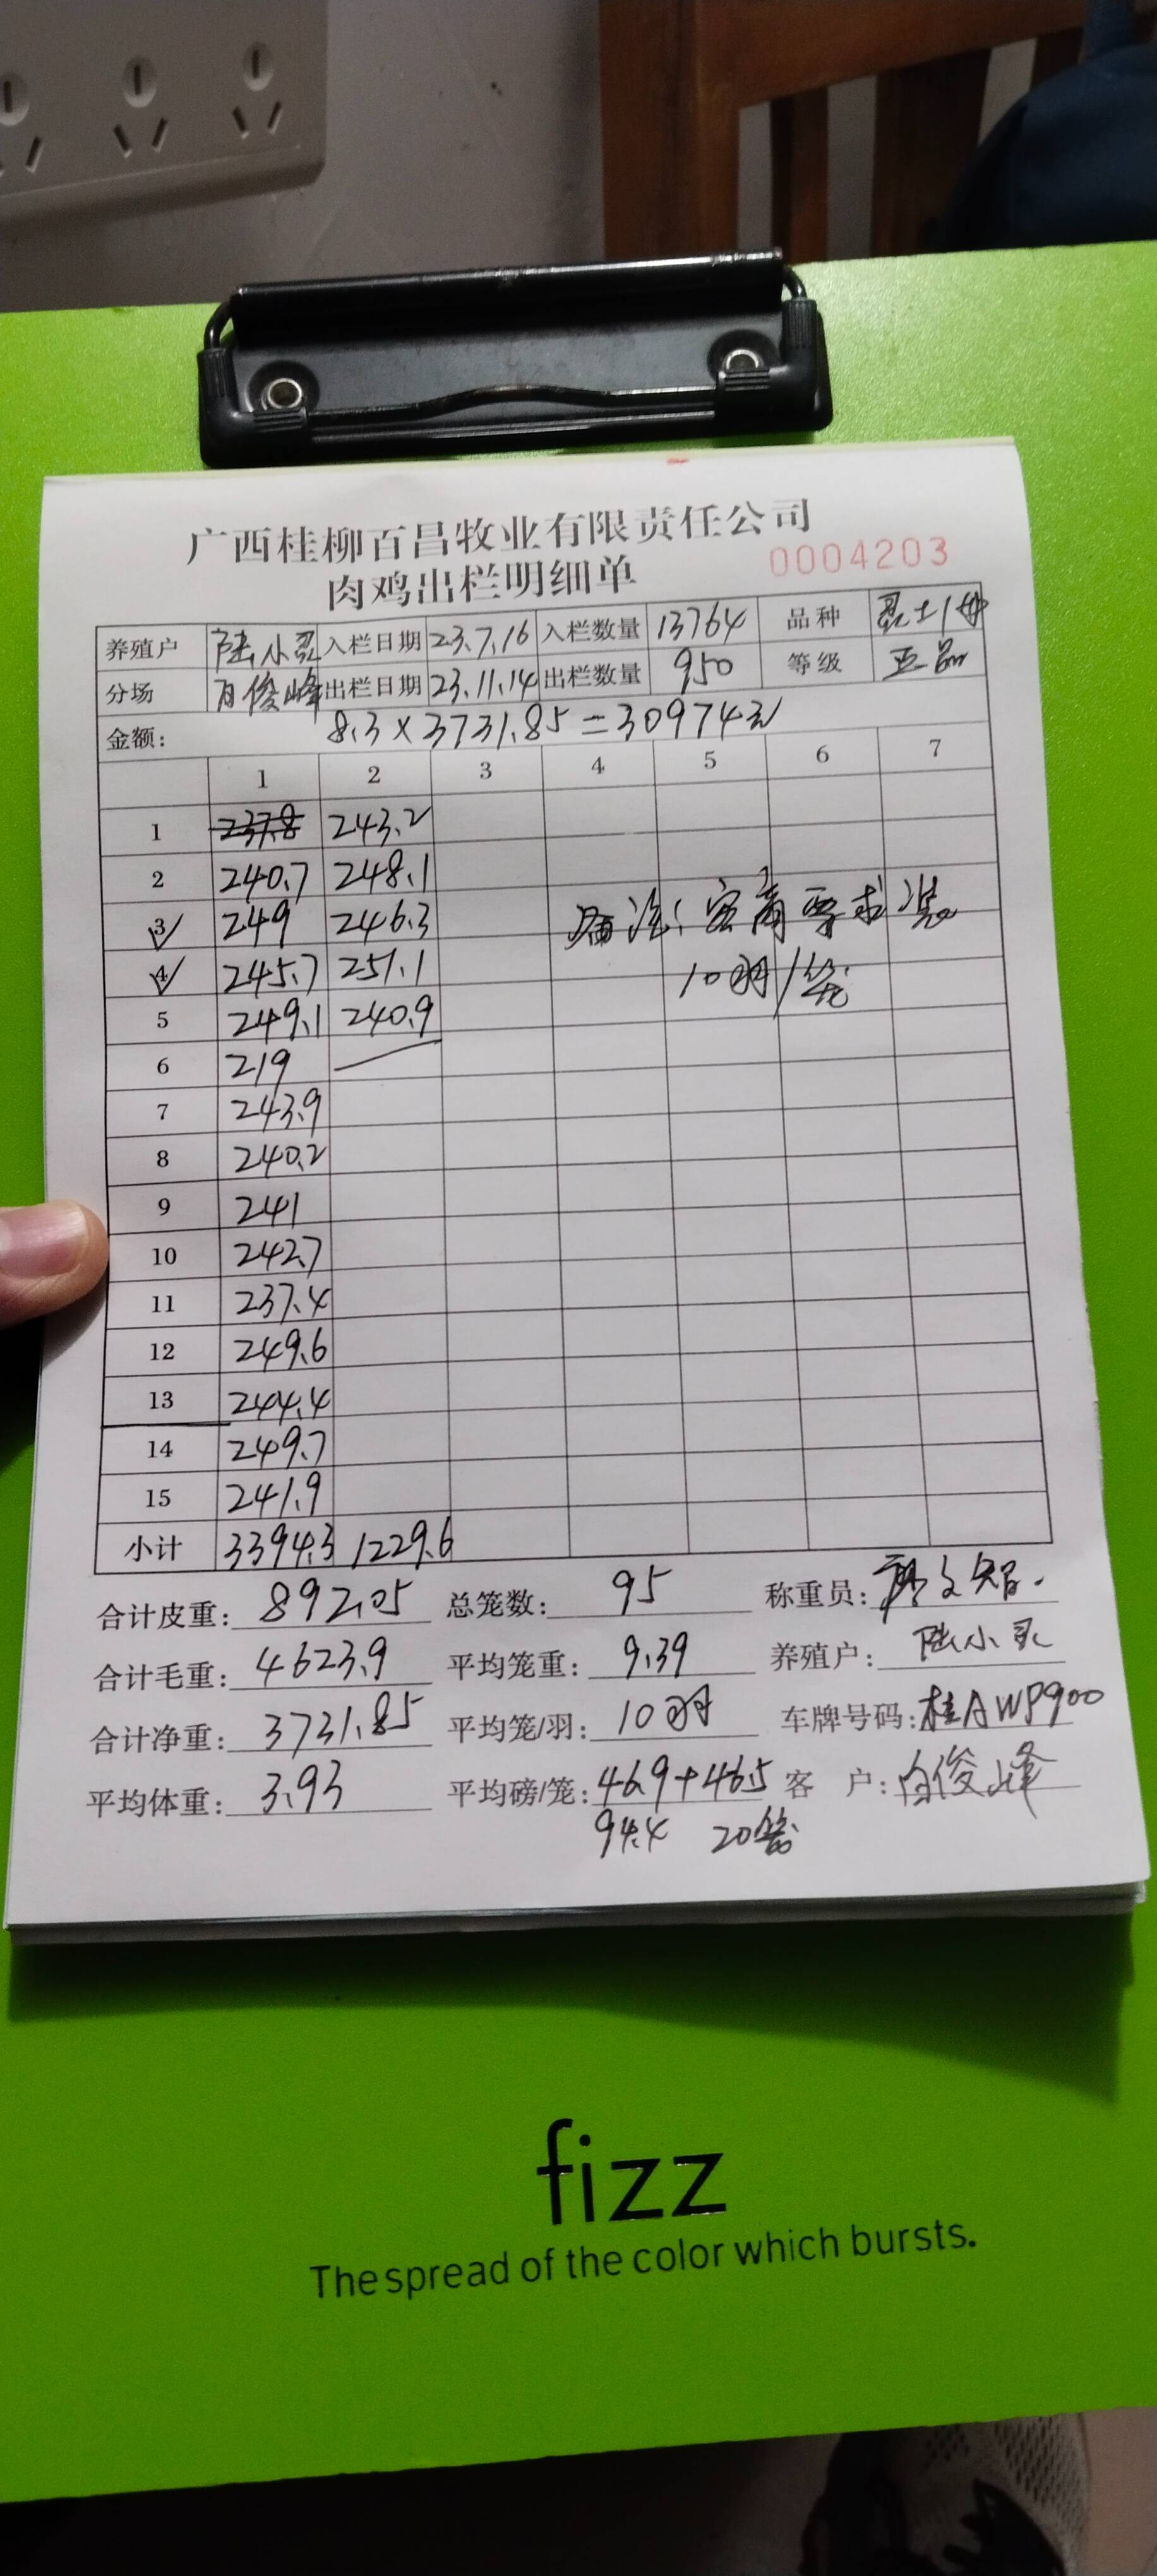 广西桂柳百昌牧业有限责任公司
肉鸡出栏明细单 0004203
养殖户 陆小 入栏日期 23.7.16 入栏数量 13764 品种
分场 肖俊峰 出栏日期 23.11.14 出栏数量 950 等级 正品
金额: 8.3×3731.85=30974元
1 2 3 4 5 6 7
1 237.8 243.2
2 240.7 248.1
3 249 246.3
4 245.7 251.1
5 249.1 240.9
6 219
7 243.9
8 240.2
9 241
10 242.7
11 237.4
12 249.6
13 244.4
14 249.7
15 241.9
备注:客商要求装
10羽/笼
小计 3394.3 1229.6
合计皮重: 892.05 总笼数: 95 称重员: 文智.
合计毛重: 4623.9 平均笼重: 9.39 养殖户: 陆小
合计净重: 3731.85 平均笼/羽: 10羽 车牌号码: 桂AWP900
平均体重: 3.93 平均磅/笼: 46.9+46.5 客 户: 肖俊峰
94.4 20笼
fizz
The spread of the color which bursts.